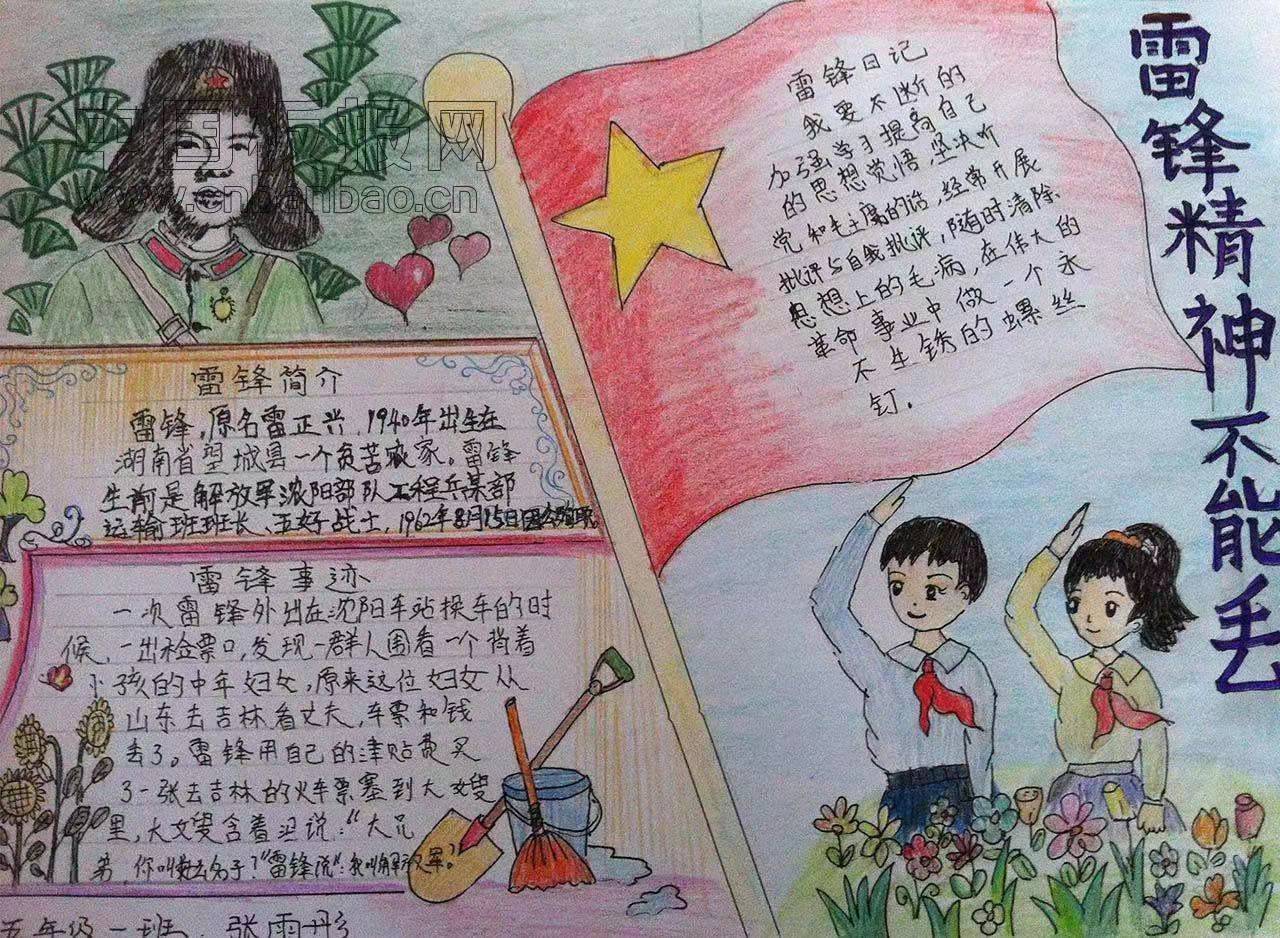 雷锋精神不能丢
中国板报网
www.cnbanbao.cn
雷锋日记
我要不断的
加强学习提高自己
的思想觉悟,坚决听
党和毛主席的话,经常开展
批评与自我批评,随时清除
思想上的毛病,在伟大的
革命事业中做一个永
不生锈的螺丝
钉.
雷锋简介
雷锋,原名雷正兴,1940年出生在
湖南省望城县一个贫苦农家。雷锋
生前是解放军沈阳部队工程兵某部
运输班班长、五好战士,1962年8月15日因公殉职。
雷锋事迹
一次雷锋外出在沈阳车站换车的时
候,一出检票口,发现一群人围着一个背着
小孩的中年妇女,原来这位妇女从
山东去吉林看丈夫,车票和钱
丢了。雷锋用自己的津贴费买
了一张去吉林的火车票塞到大嫂
里,大嫂含着泪说:“大兄
弟,你叫什么名子?”雷锋说“:我叫解放军。”
五年级一班 张雨彤